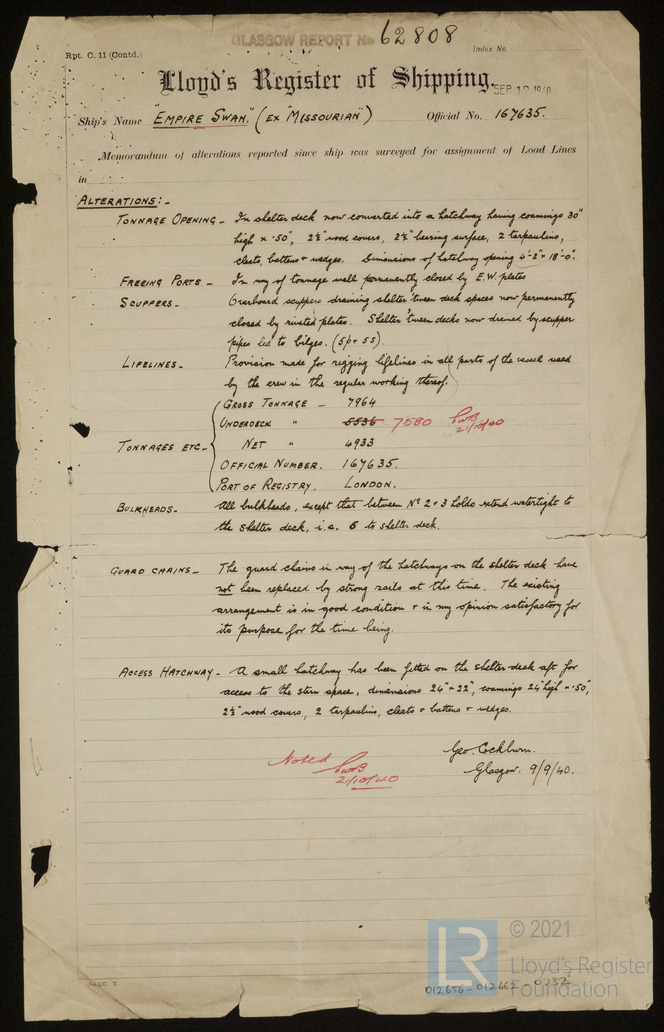 GLASGOW REPORT No 62808
Rpt. C. 11 (Contd.)
Index No.
Lloyd's Register of Shipping.
SEP 12 1940
Ship's Name "EMPIRE SWAN." (EX "MISSOURIAN") Official No. 167635.
Memorandum of alterations reported since ship was surveyed for assignment of Load Lines
in
ALTERATIONS:-
TONNAGE OPENING - In shelter deck now converted into a hatchway having coamings 30"
high x .50", 2½" wood covers, 2½" bearing surface, 2 tarpaulins,
cleats, battens & wedges. Dimensions of hatchway opening 4'-2" x 18'-0".
FREEING PORTS - In way of tonnage well permanently closed by E.W. plates
SCUPPERS - Overboard scuppers draining shelter 'tween deck spaces now permanently
closed by riveted plates. Shelter 'tween decks now drained by scupper
pipes led to bilges. (5p + 5s)
LIFELINES - Provision made for rigging lifelines in all parts of the vessel used
by the crew in the regular working thereof.
TONNAGES ETC -
GROSS TONNAGE - 7964
UNDERDECK " 5536 7580 21/10/40
NET " 4933
OFFICIAL NUMBER. 167635.
PORT OF REGISTRY. LONDON.
BULKHEADS - All bulkheads, except that between No 2 & 3 holds extend watertight to
the shelter deck, i.e. 6 to shelter deck.
GUARD CHAINS - The guard chains in way of the hatchways on the shelter deck have
not been replaced by strong rails at this time. The existing
arrangement is in good condition & in my opinion satisfactory for
its purpose for the time being.
ACCESS HATCHWAY - A small hatchway has been fitted on the shelter deck aft for
access to the stern space, dimensions 24" x 22", coamings 24" high x .50",
2½" wood covers, 2 tarpaulins, cleats & battens & wedges.
Geo. Cockburn.
Glasgow. 9/9/40.
Noted
21/10/40
LR
© 2021
Lloyd's Register
Foundation
012656-012662-0232